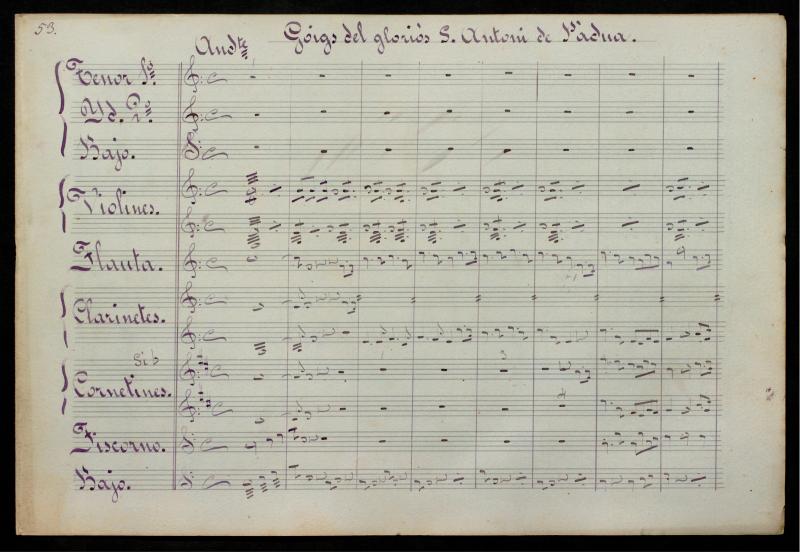 53.
Andte
Góigs del gloriós S. Antoni de Pàdua.
Tenor 1º.
Yd. 2º.
Bajo.
Violines.
Flauta.
Clarinetes.
Si b
Cornetines.
3
4
Fiscorno.
Bajo.